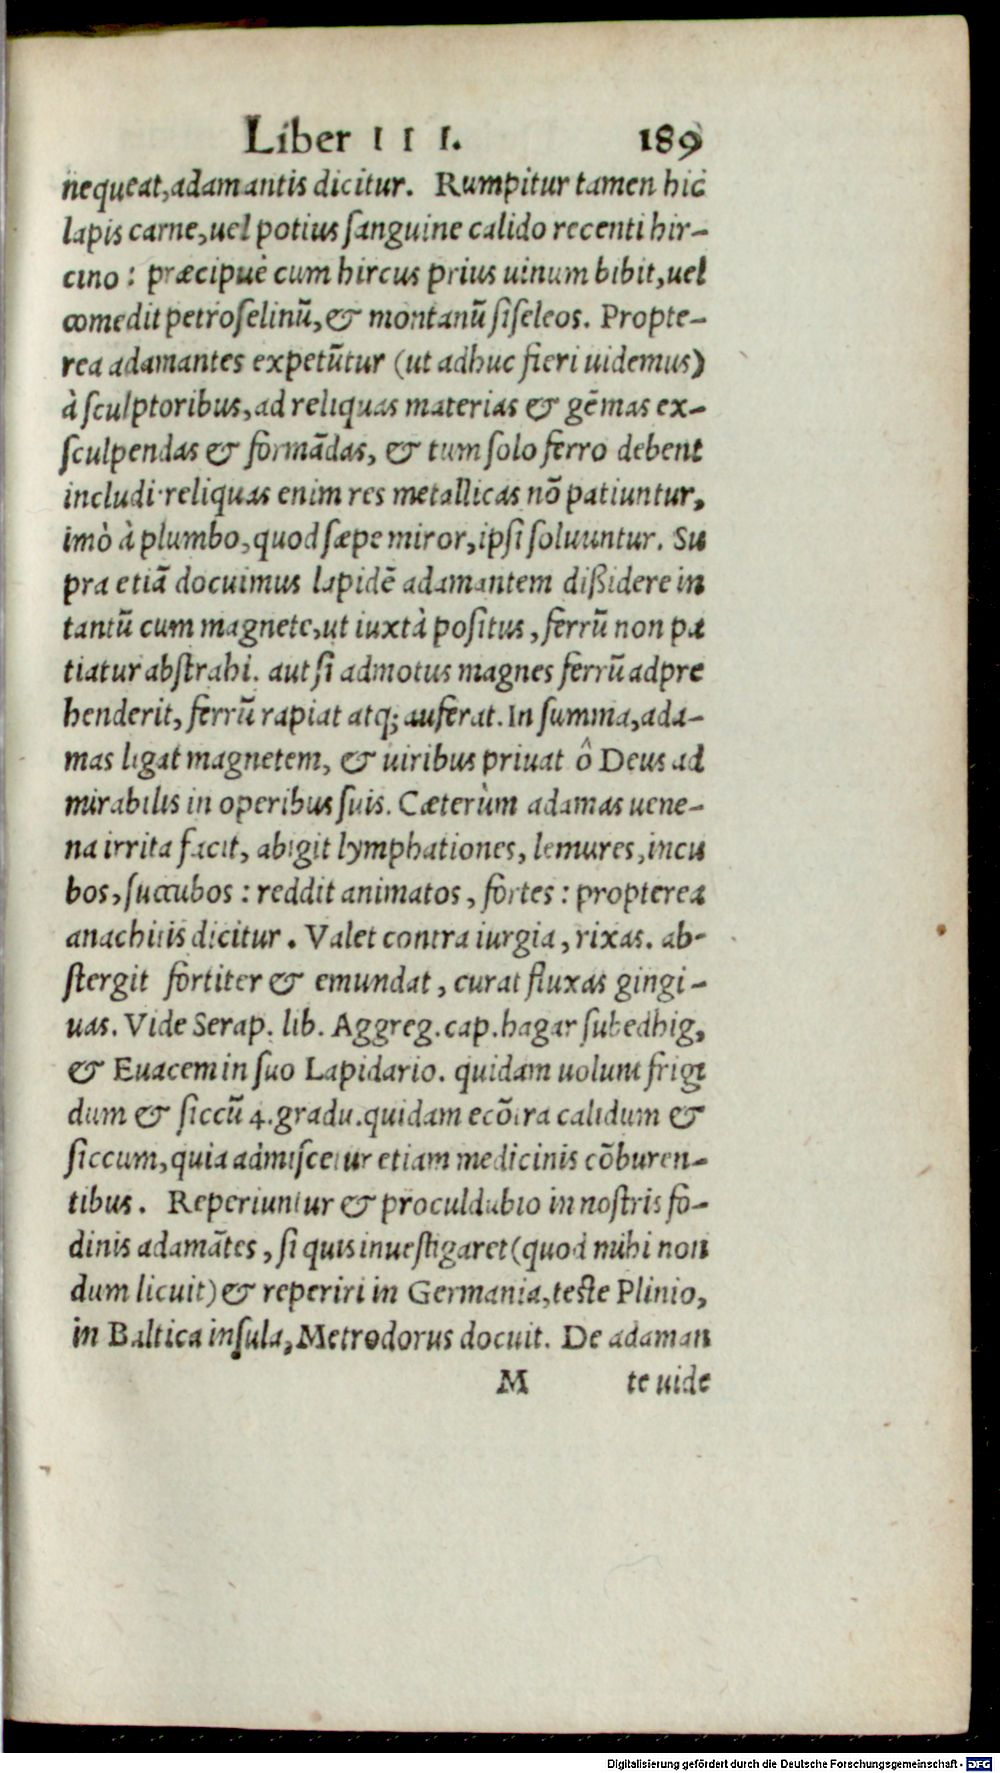 Liber III. 189
nequeat, adamantis dicitur. Rumpitur tamen hic
lapis carne, uel potius sanguine calido recenti hir-
cino: præcipuè cum hircus prius uinum bibit, uel
comedit petroselinũ, & montanũ siseleos. Propte-
rea adamantes expetũtur (ut adhuc fieri uidemus)
à sculptoribus, ad reliquas materias & gẽmas ex-
sculpendas & formãdas, & tum solo ferro debent
includi· reliquas enim res metallicas nõ patiuntur,
imò à plumbo, quod sæpe miror, ipsi soluuntur. Su
pra etiã docuimus lapidẽ adamantem dißidere in
tantũ cum magnete, ut iuxtà positus, ferrũ non pa
tiatur abstrahi. aut si admotus magnes ferrũ adpre
henderit, ferrũ rapiat atq; auferat. In summa, ada-
mas ligat magnetem, & uiribus priuat ô Deus ad
mirabilis in operibus suis. Cæterùm adamas uene-
na irrita facit, abigit lymphationes, lemures, incu
bos, succubos: reddit animatos, fortes: propterea
anachitis dicitur. Valet contra iurgia, rixas. ab-
stergit fortiter & emundat, curat fluxas gingi-
uas. Vide Serap. lib. Aggreg. cap. hagar subedhig,
& Euacem in suo Lapidario. quidam uolunt frigi
dum & siccũ 4. gradu. quidam ecõtra calidum &
siccum, quia admiscetur etiam medicinis cõburen-
tibus. Reperiuntur & proculdubio in nostris fo-
dinis adamãtes, si quis inuestigaret (quod mihi non
dum licuit) & reperiri in Germania, teste Plinio,
in Baltica insula, Metrodorus docuit. De adaman
M te uide
Digitalisierung gefördert durch die Deutsche Forschungsgemeinschaft - DFG